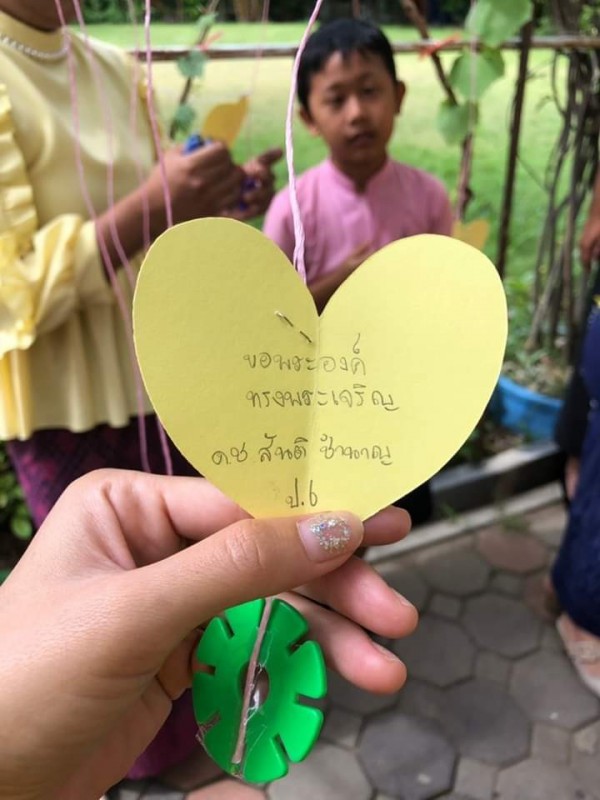 ขอพระองค์
ทรงพระเจริญ
ดช สันติ ชำนาญ
ป.6